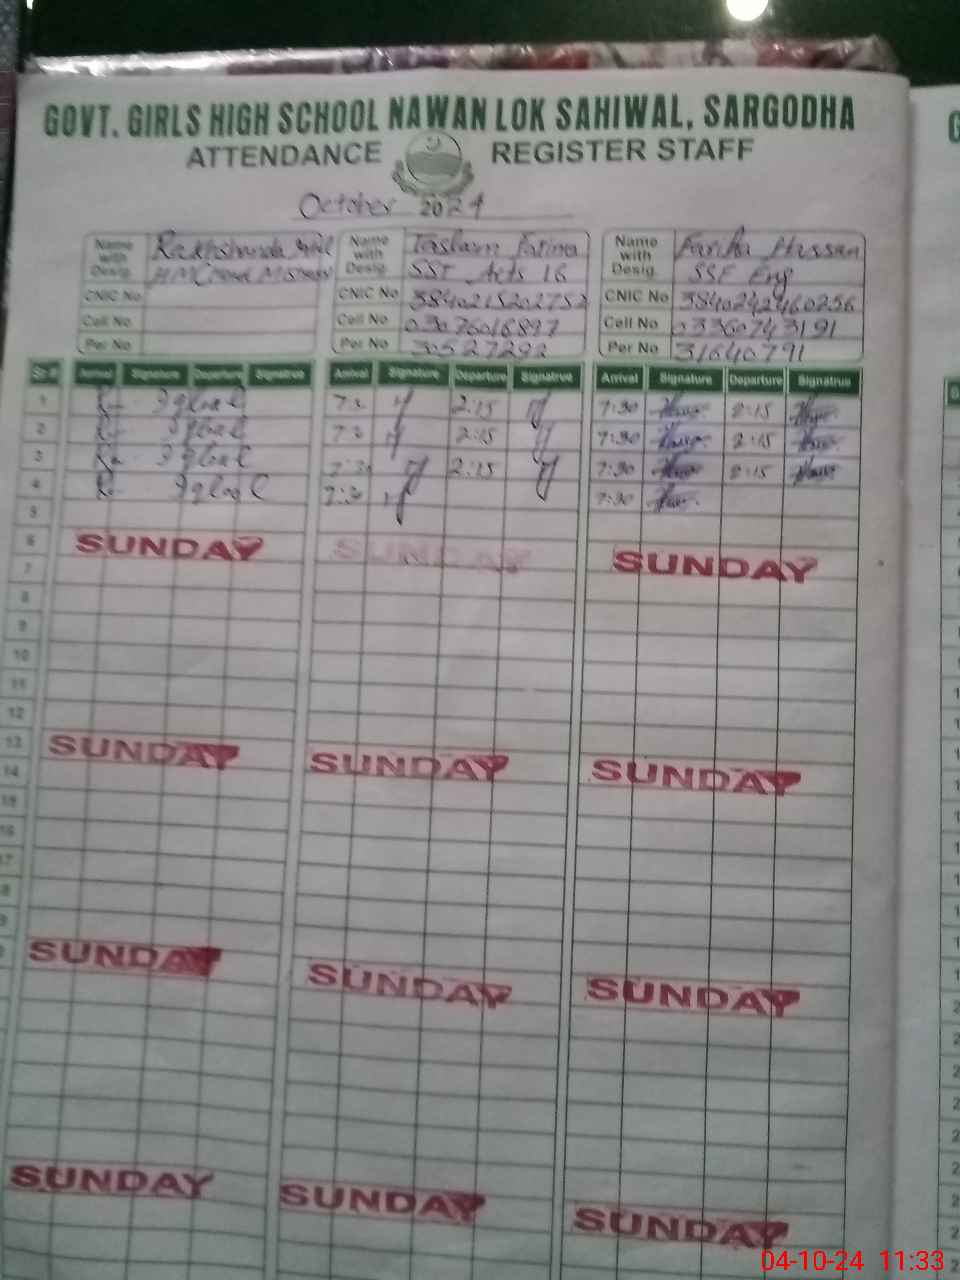 GOVT. GIRLS HIGH SCHOOL NAWAN LOK SAHIWAL, SARGODHA
ATTENDANCE REGISTER STAFF
October 2024
Name with Desig. Rakhshanda
CNIC No
Cell No
Per No
Name with Desig. Tasleem Fatima
SST Arts 16
CNIC No 3840215202752
Cell No 03076016897
Per No 30527292
Name with Desig. Fariha Hussan
SSE Eng
CNIC No 3840242460256
Cell No 03360743191
Per No 31640791
Sr # Arrival Signature Departure Signatrue Arrival Signature Departure Signatrue Arrival Signature Departure Signatrue
1 2:15 7:30 2:15
2 2:15 7:30 2:15
3 7:30 2:15 7:30 2:15
4 7:30 7:30
5
6 SUNDAY SUNDAY SUNDAY
7
8
9
10
11
12
13 SUNDAY SUNDAY SUNDAY
14
15
16
17
SUNDAY SUNDAY SUNDAY
SUNDAY SUNDAY SUNDAY
04-10-24 11:33